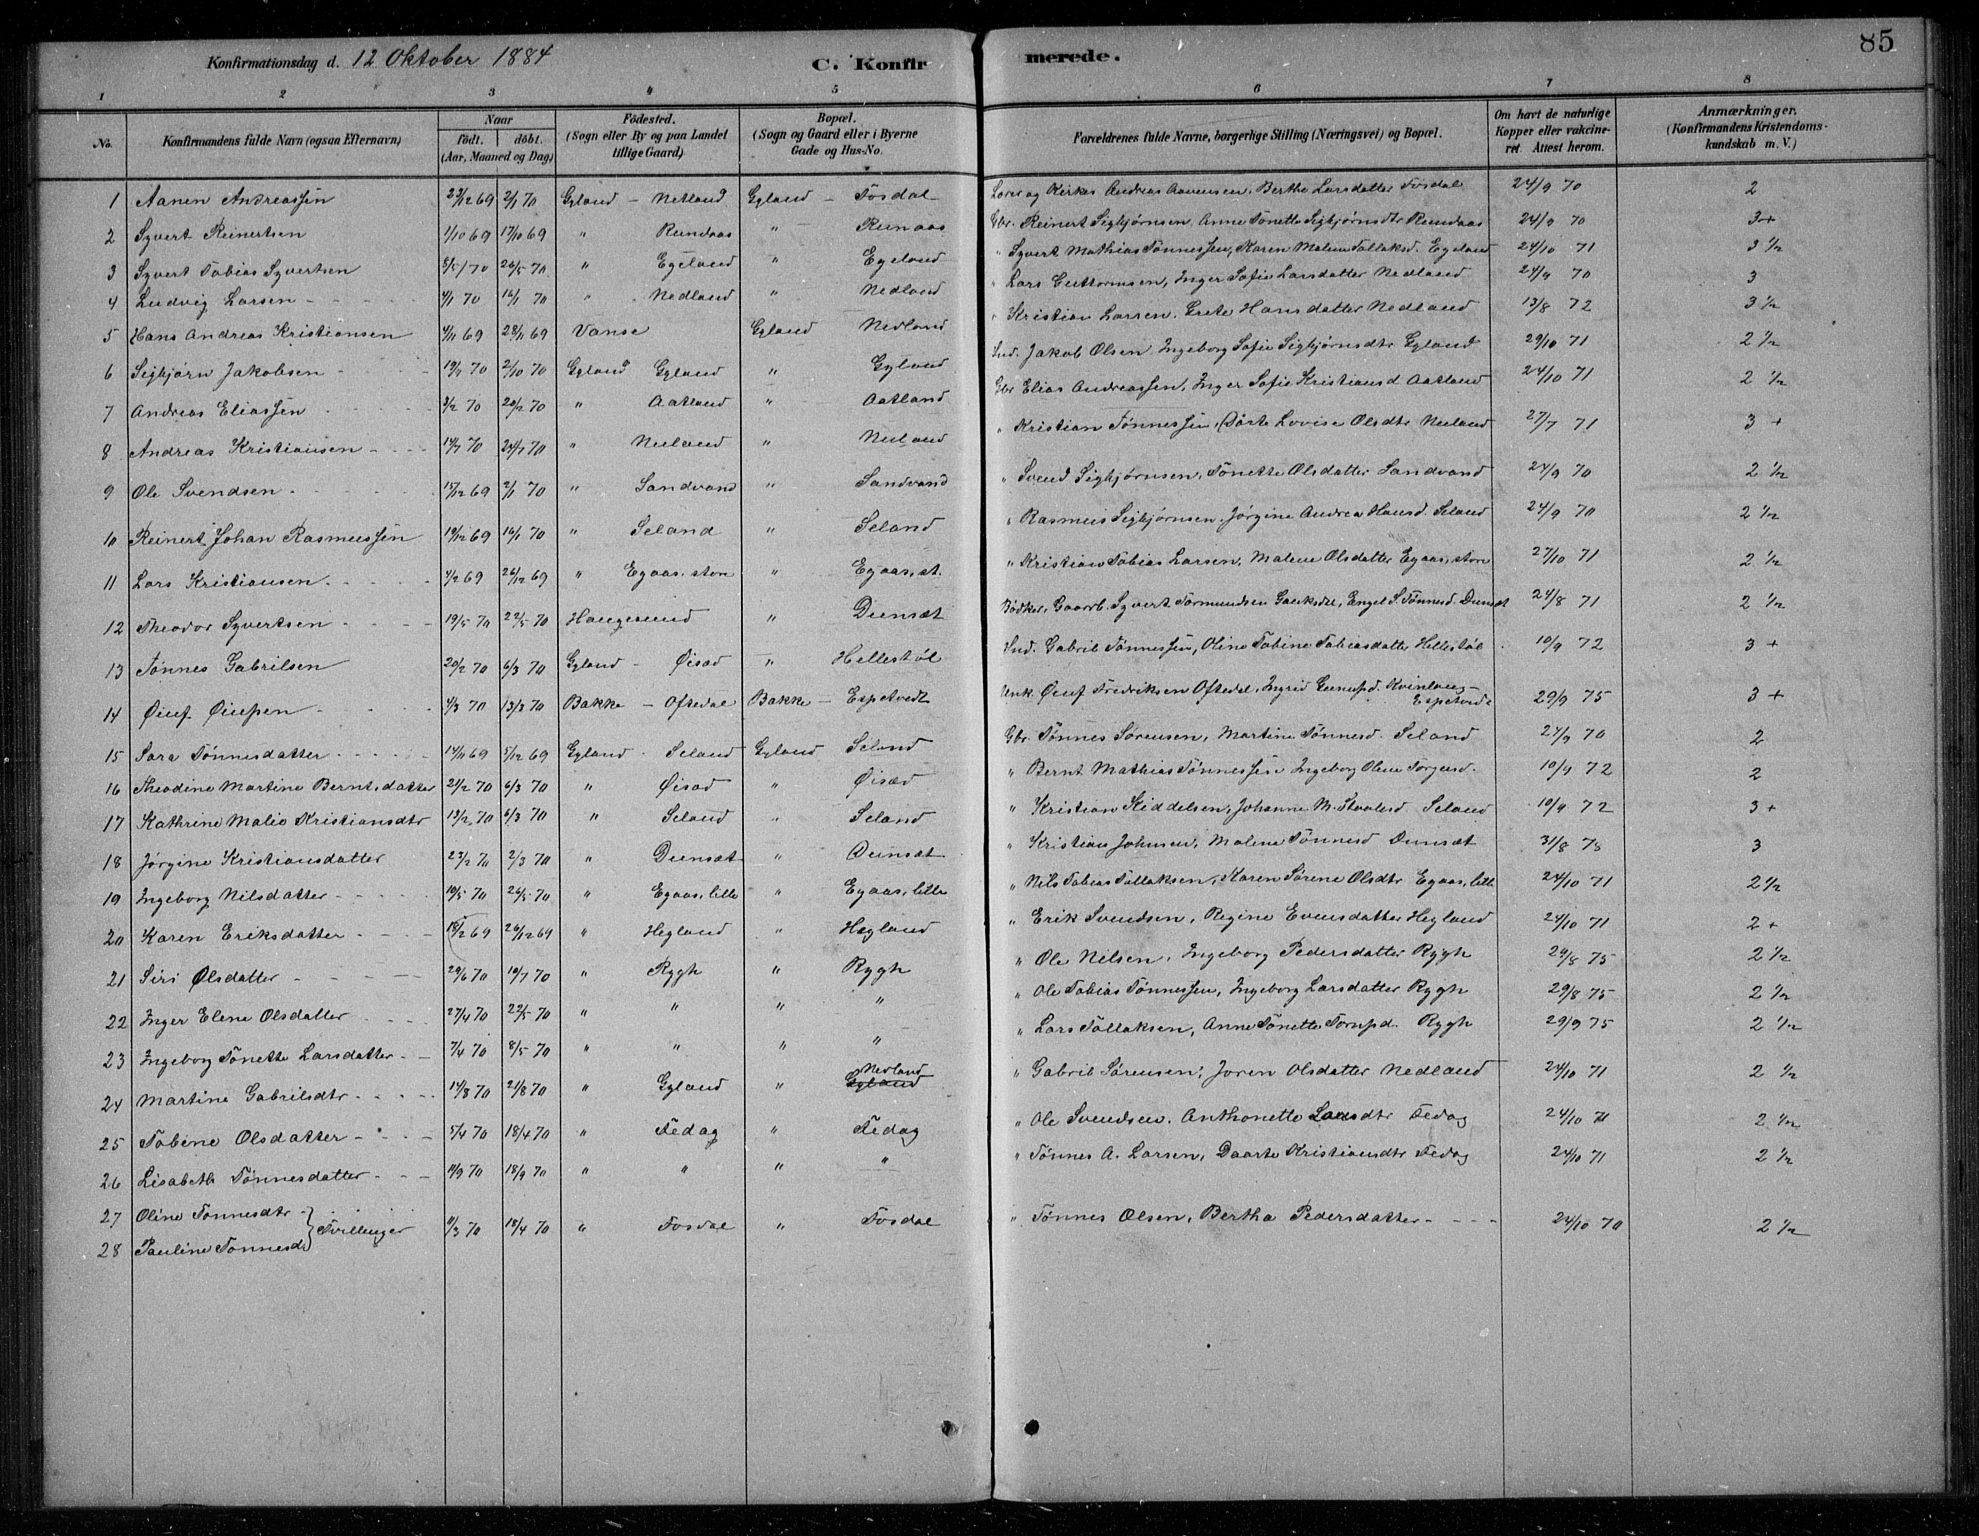 85
Konfirmationsdag d. 12 Oktober 1884 C. Konfirmerede.
1 2 3 4 5 6 7 8
No. Konfirmandens fulde Navn (ogsaa Efternavn) Naar födt. döbt. (Aar, Maaned og Dag) Födested. (Sogn eller By og paa Landet tillige Gaard) Bopæl. (Sogn og Gaard eller i Byerne Gade og Hus-No. Forældrenes fulde Navne, borgerlige Stilling (Næringsvei) og Bopæl. Om havt de naturlige Kopper eller vakcineret. Attest herom. Anmærkninger. (Konfirmandens Kristendomskundskab m. V.)
1 Aanen Andreassen 23/12 69 2/1 70 Gyland - Netland Gyland - Fosdal Lærer og Kirkes. Andreas Aanensen, Berthe Larsdatter Fosdal 24/9 70 2
2 Syvert Reinertsen 1/10 69 17/10 69 " Rundaas " Runaas Gbr. Reinert Sigbjørnsen, Anne Tonette Sigbjørnsdtr Rundaas 24/9 70 3+
3 Syvert Tobias Syvertsen 8/5 70 26/5 70 " Egeland " Egeland " Syvert Mathias Tønnessen, Karen Malene Tollaksd. Egeland 24/10 71 3 1/2
4 Ludvig Larsen 4/1 70 16/1 70 " Nedland " Nedland " Lars Guttormsen, Inger Sofie Larsdatter Nedland 24/9 70 3
5 Hans Andreas Kristiansen 4/11 69 28/11 69 Vanse Gyland Nedland " Kristian Larsen. Grete Hansdatter Nedland 13/8 72 3 1/2
6 Sigbjørn Jakobsen 19/9 70 2/10 70 Gyland Gyland " Gyland Ind. Jakob Olsen Ingeborg Sofie Sigbjørnsdtr Gyland 29/10 71 2 1/2
7 Andreas Eliassen 3/2 70 20/2 70 " Aatland " Aatland Gbr Elias Andreassen, Inger Sofie Kristiansd Aatland 24/10 71 2 1/2
8 Andreas Kristiansen 14/7 70 24/7 70 " Nuland " Nuland " Kristian Tønnessen, Dorte Lovise Olsdtr Nuland 27/7 71 3 +
9 Ole Svendsen 15/12 69 2/1 70 " Sandvand " Sandvand " Svend Sigbjørnsen, Tonette Olsdatter Sandvand 24/9 70 2 1/2
10 Reinert Johan Rasmussen 19/12 69 16/1 70 " Seland " Seland " Rasmus Sigbjørnsen, Jørgine Andrea Hansd. Seland 24/9 70 2 1/2
11 Lars Kristiansen 1/2 69 26/12 69 " Egaas, store " Egaas, st. " Kristian Tobias Larsen, Malene Olsdatter Egaas, store 27/10 71 2 1/2
12 Theodor Syvertsen 19/5 70 22/5 70 Haugesund " Dunsæt Bødker, Gaardb. Syvert Tormundsen, Engel S. Tønnesd. Dunsæt 24/8 71 2 1/2
13 Tønnes Gabrilsen 20/2 70 6/3 70 Gyland - Øisæd " Hellestøl Ind. Gabril Tønnessen, Oline Tobine Tobiasdatter Hellestøl 10/9 72 3 +
14 Øiuf Øiufsen 4/3 70 13/3 70 Bakke - Oftedal Bakke - Espetvedt Øiuf Fredriksen Oftedal, Ingrid Espetvedt 29/9 75 3 +
15 Sara Tønnesdatter 14/11 69 5/12 69 Gyland - Seland Gyland Seland Gbr. Tønnes Sørensen, Martine Tønnesd. Seland 24/9 70 2
16 Theodine Martine Berntsdatter 21/2 70 6/3 70 " Øisæd " Øisæd " Bernt Mathias Tønnessen Ingeborg Olene Torgersd. 10/9 72 2
17 Kathrine Malie Kristiansdtr 13/2 70 6/3 70 " Seland " Seland " Kristian Kiddelsen, Johanne M. Staalesd Seland 10/9 72 3 +
18 Jørgine Kristiansdatter 23/2 70 2/3 70 " Dunsæt " Dunsæt " Kristian Johnsen, Malene Tønnesd Dunsæt 31/8 78 3
19 Ingeborg Nilsdatter 10/5 70 26/5 70 " Egaas, lille " Egaas, lille " Nils Tobias Tollaksen, Karen Sørene Olsdtr Egaas, lille 24/10 71 2 1/2
20 Karen Eriksdatter 18/12 69 26/12 69 " Hegland " Hægland " Erik Svendsen, Regine Evensdatter Hegland 24/10 71 2 +
21 Siri Olsdatter 29/6 70 10/7 70 " Rygh " Rygh " Ole Nilsen, Ingeborg Pedersdatter Rygh 29/8 75 2 1/2
22 Inger Elene Olsdatter 27/4 70 22/5 70 " " " " " Ole Tobias Tønnessen, Ingeborg Larsdatter Rygh 29/8 75 2 1/2
23 Ingeborg Tonette Larsdatter 7/4 70 8/5 70 " " " " " Lars Tollaksen, Anne Tonette Rygh 29/9 75 2 1/2
24 Martine Gabrilsdtr 14/8 70 21/8 70 " Gyland " Nedland Gyland " Gabril Sørensen, Joren Olsdatter Nedland 24/10 71 2 1/2
25 Tobene Olsdatter 5/4 70 18/4 70 " Fedag " Fedag " Ole Svendsen. Anthonette Larsdtr Fedag 24/10 71 2 1/2
26 Lisabeth Tønnesdatter 11/9 70 18/9 70 " " " " " Tønnes A. Larsen, Daarte Kristiansdtr Fedag 24/10 71 2 1/2
27 Oline Tønnesdtr
28 Pauline Tønnesd. } Tvillinger 9/3 70 18/4 70 " Fosdal " Fosdal " Tønnes Olsen, Bertha Pedersdatter 24/10 70 2 1/2